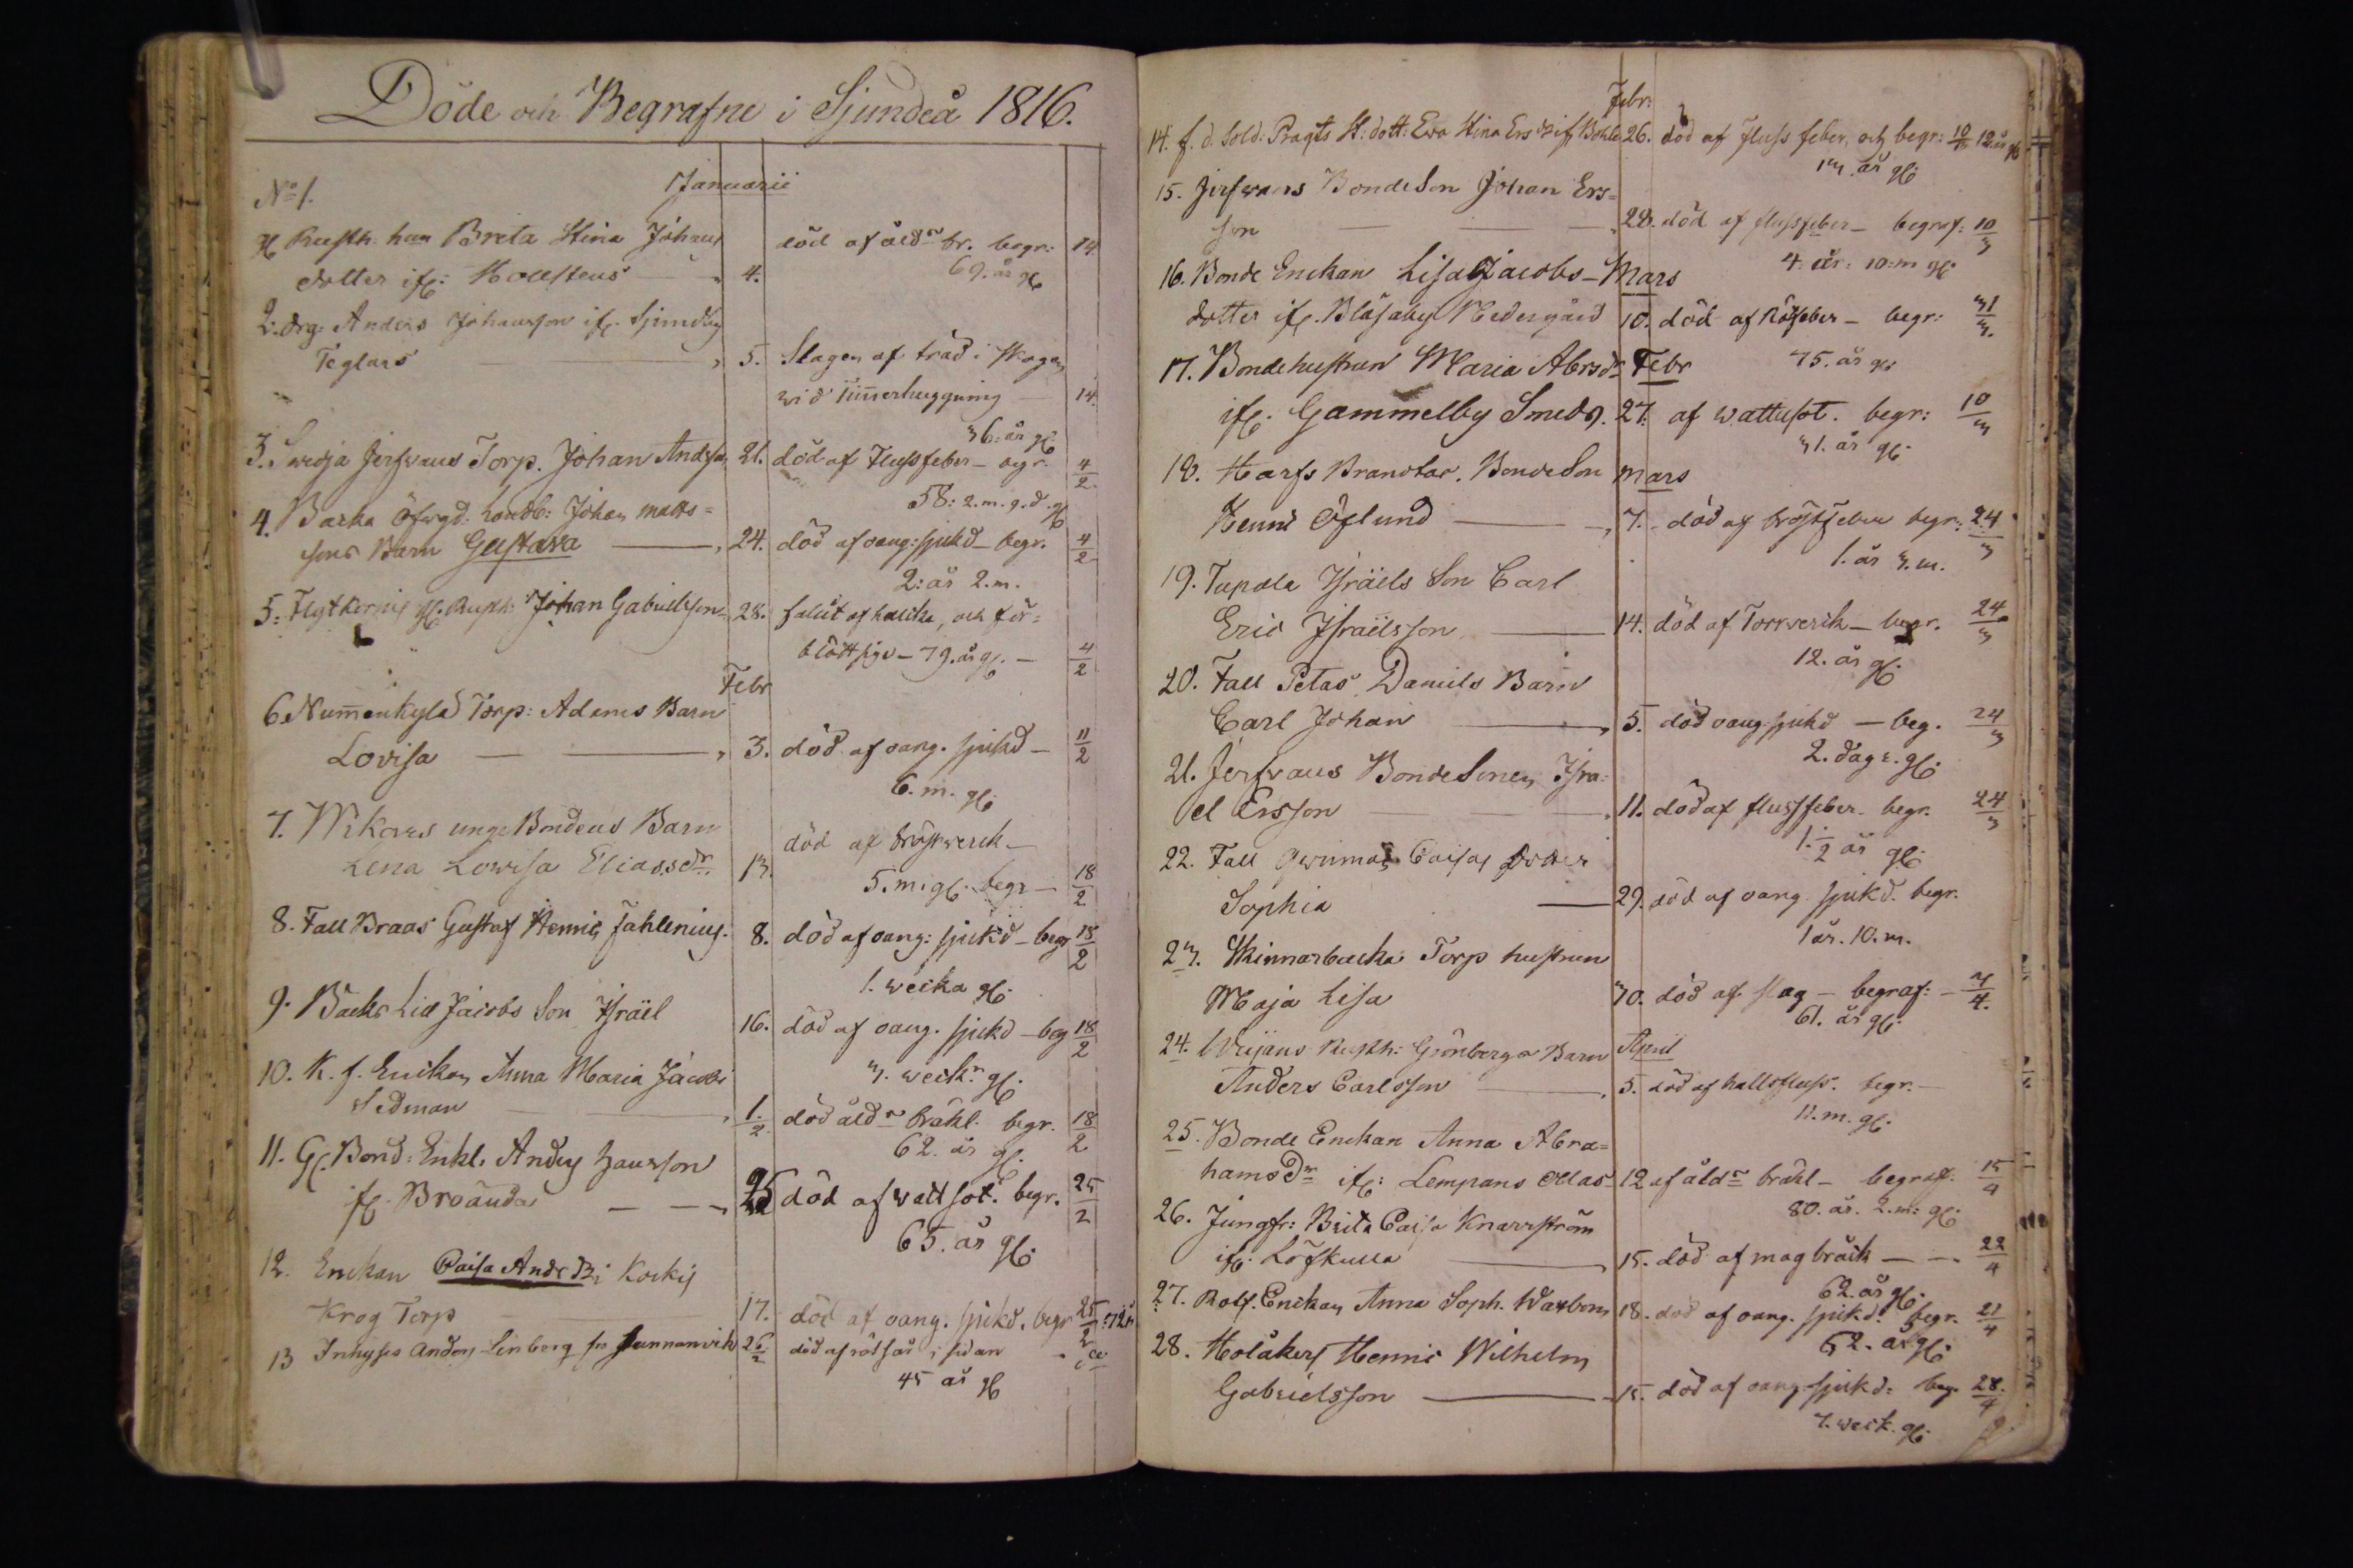 Döde och Begrafne i Sjundeå 1816.
No 1.
Januarii
gl Rusth: hun Breta Stina Johans
dotter ifr: Hollsteus 4. död af åldr br. begr: 14
69. år gl
2. drg: Anders Johansson ifr. Sjundby
Teglars 5. Slagen af träd i skogen
wid Timerhuggning 14.
36: år gl
3. Swidja Jerfwans Torp. Johan Andss 21. död af Flussfeber - begr. 4/2
58: 2. m. 9. d. gl
4. Backa Öfwgd: Landb: Johan matts=
sons Barn Gustava 24. död af oang: sjukd - begr. 4/2
2: år 2. m.
5. Flytkernis gl. Rusth: Johan Gabrielsson 28.
79. år gl. 4/2
Febr
6. Numenkyla Torp: Adams Barn
Lovisa 3. död af oang. sjukd - 11/2
6. m. gl.
7. Wikars unge Bondens Barn
död af bröstwerck -
Lena Lowisa Eliasdr. 13.
5. m. gl. begr - 18/2
8. Fall Braas Gustaf Henric Fahlenius. 8. död af oang: sjukd - begr 18/2
1. wecka gl.
9. Backs Lill Jacobs Son Israel
16. död af oang. sjukd - beg 18/2
3. weck. gl.
10. K. f. Enckan Anna Maria Jacobs
Sedman 1/2. död åldr bräkl. begr. 18/2
62. år gl.
11. Gl. Bond: Enkl. Anders Hansson
ifr. Broända 25 död af wattsot. begr. 25/2
65. år gl.
12. Enckan Caisa Andsdr i Kockis
Krog Torp 17. död af oang. sjukd. begr 25/2 72 år
13 Inhyses Anders Linberg fr Sunnanwik 26/2 död af rötsår i sidan
45 år gl
Febr:
14. f. d. Sold: Pragts H: dott: Ewa Stina Ersdr if Böhle 26. död af Fluss feber, och begr: 10/3 12. år gl
13. år gl.
15. Jerfwans Bonde Son Johan Ers=
son 28. död af flussfeber - begraf: 10/3
4: år: 10: m gl.
16. Bonde Enckan Lisa Jacobs- Mars
dotter ifr. Blåsaby Nedergård 10. död af Rötfeber - begr: 31/3.
75. år gl
17. Bondehustrun Maria Abrsdr Febr
ifr. Gammelby Smeds. 27. af wattusot. begr: 10/3
31. år gl.
18. Harfs Brandtas. Bonde Son Mars
Henric Öflund 7. död af bröstfeber begr: 24/3
1. år 3. m.
19. Tupala Israels Son Carl
Eric Israelsson 14. död af Torrwerck - begr. 24/3
12. år gl.
20. Fall Petas Daniels Barn
Carl Johan 5. död oang sjukd - beg. 24/3
2. dagr. gl.
21. Jerfwans Bonde Sonen Isra-
el Ersson 11. död af flussfeber. begr. 24/3
1. 1/2 år gl.
22. Fall Caisas Dotter
Sophia 29. död af oang. sjukd. begr.
1 år. 10. m.
23. Skinnarbacka Torp hustrun
Maja Lisa 30. död af slag - begraf: - 7/4.
61. år gl.
24. Wrijans Rusth: Grönbergs Barn April
Anders Carlsson 5. död af hallsfluss. begr. -
11. m. gl.
25. Bonde Enckan Anna Abra=
hamsdr ifr: Lempans Ollas 12 af åldr bräkl - begraf: 15/4
80. år. 2. m: gl.
26. Jungfr: Brita Caisa Knarrström
ifr. Löfkulla 15. död af magbråck - 22/4
62. år gl.
27. Rolf. Enckan Anna Soph. Waxbom 18. död af oang. sjukd. begr. 21/4
52. år gl.
28. Holåkers Henric Wilhelm
Gabrielsson 15. död af oang-sjukd: beg. 28/4
7. weck. gl.